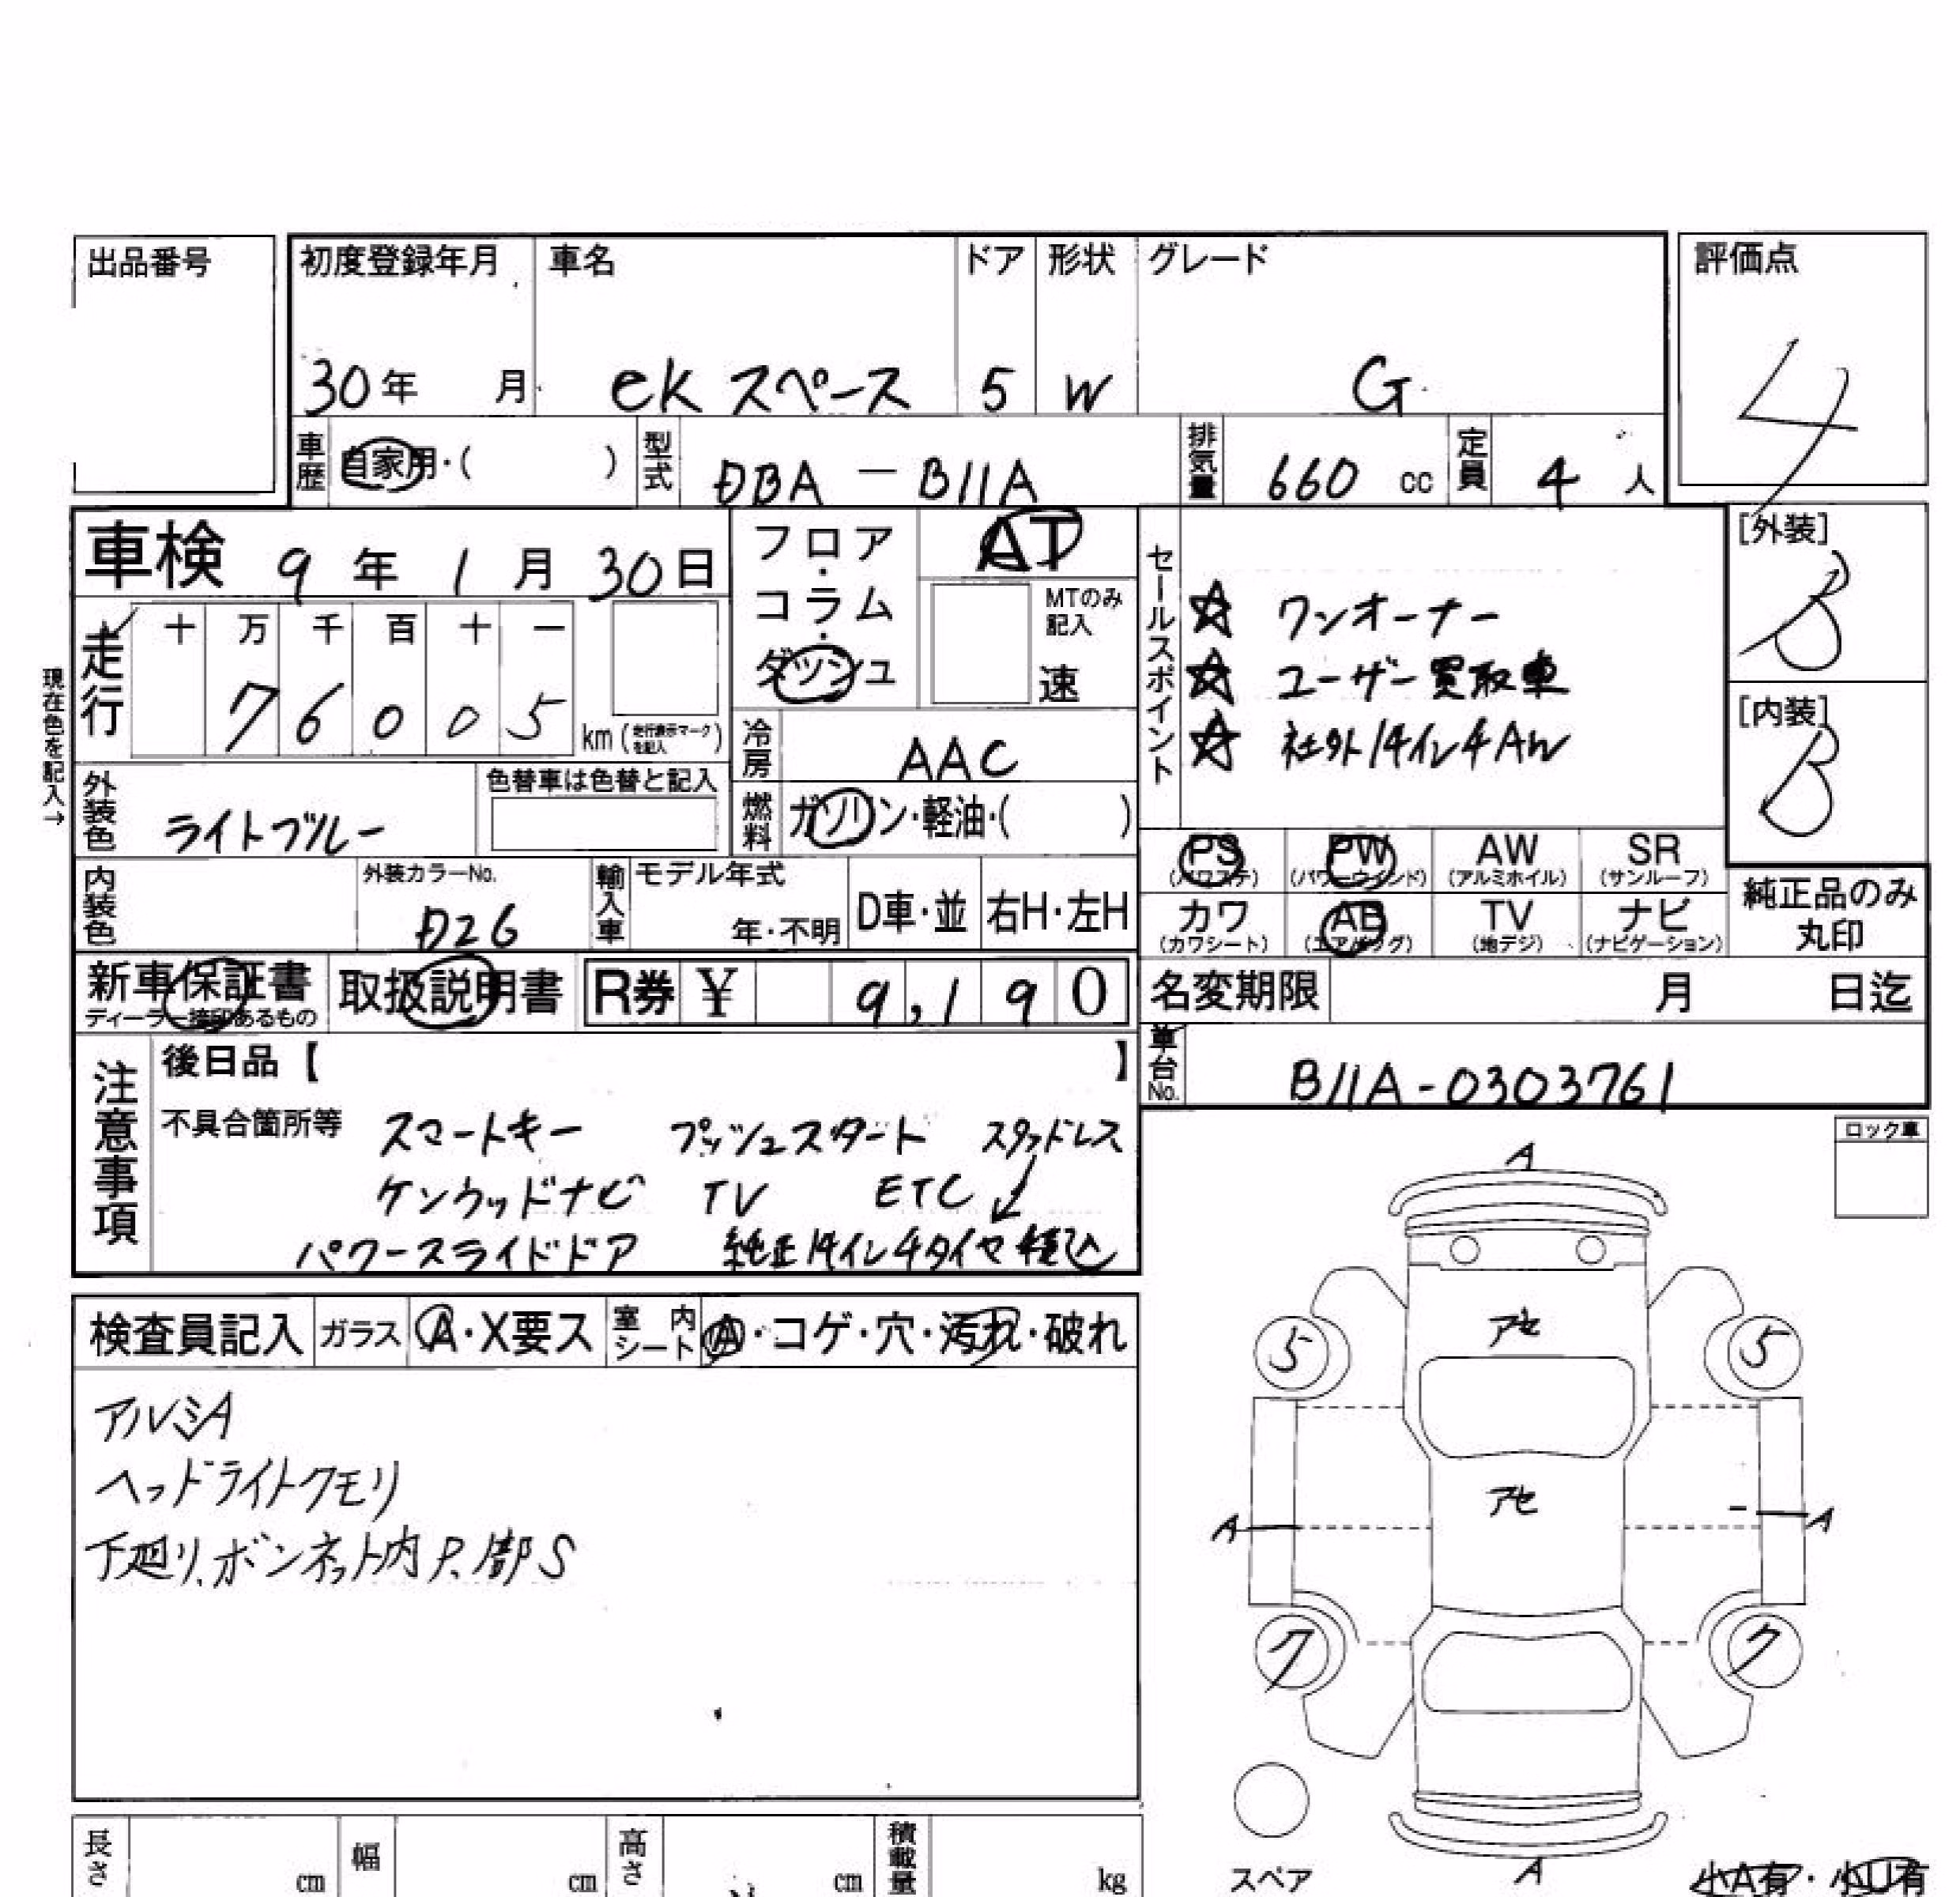 出品番号
初度登録年月 車名 ドア 形状 グレード 評価点
30年 月 ek スペース 5 W G 4
車歴 自家用・( ) 型式 DBA － B11A 排気量 660 cc 定員 4 人
車検 9 年 1 月 30日
フロア・コラム・ダッシュ
AT
MTのみ記入
速
セールスポイント
☆ ワンオーナー
☆ ユーザー買取車
☆ 社外14インチAW
[外装]
B
[内装]
B
現在色を記入→
走行
十 万 千 百 十 一
7 6 0 0 5 km (走行表示マークを記入)
冷房 AAC
外装色 ライトブルー 色替車は色替と記入
燃料 ガソリン・軽油・( )
PS (パワステ) PW (パワーウィンド) AW (アルミホイル) SR (サンルーフ)
カワ (カワシート) AB (エアバッグ) TV (地デジ) ナビ (ナビゲーション)
純正品のみ丸印
内装色 外装カラーNo. D26 輸入車 モデル年式 年・不明 D車・並 右H・左H
新車保証書 ディーラー捺印あるもの 取扱説明書 R券 ¥ 9,190
名変期限 月 日迄
車台No. B11A-0303761
注意事項
後日品【 】
不具合箇所等 スマートキー プッシュスタート スタッドレス
ケンウッドナビ TV ETC ↙
パワースライドドア 純正14インチタイヤ積込
ロック車
検査員記入 ガラス A・X要ス 室内シート A・コゲ・穴・汚れ・破れ
アルミA
ヘッドライトクモリ
下廻り、ボンネット内P.部S
A
アセ
5 5
アセ
A A
7 7
スペア
A
小A有・小U有
長さ cm 幅 cm 高さ cm 積載量 kg